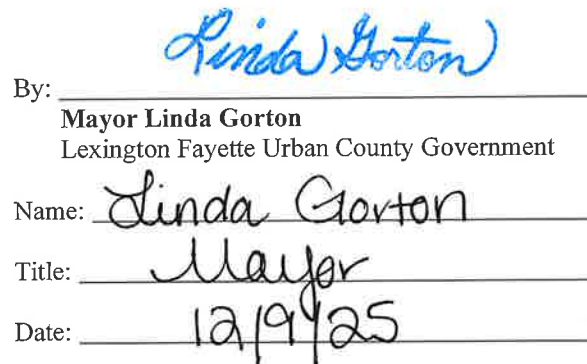 Linda Gorton
By:
Mayor Linda Gorton
Lexington Fayette Urban County Government
Name: Linda Gorton
Title: Mayor
Date: 12/9/25